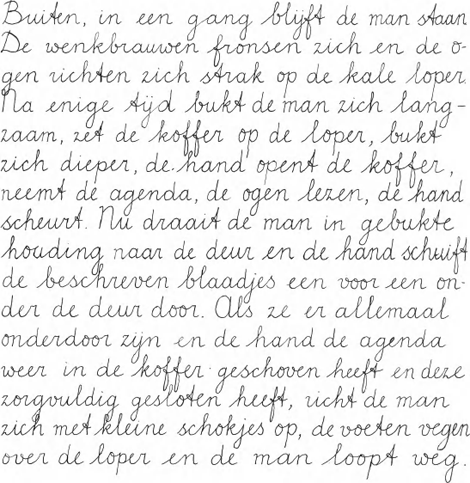 Buiten, in een gang blijft de man staan
De wenkbrauwen fronsen zich en de o-
gen richten zich strak op de kale loper
Na enige tijd bukt de man zich lang-
zaam, zet de koffer op de loper, bukt
zich dieper, de hand opent de koffer,
neemt de agenda, de ogen lezen, de hand
scheurt. Nu draait de man in gebukte
houding naar de deur en de hand schuift
de beschreven blaadjes een voor een on-
der de deur door. Als ze er allemaal
onderdoor zijn en de hand de agenda
weer in de koffer geschoven heeft en deze
zorgvuldig gesloten heeft, richt de man
zich met kleine schokjes op, de voeten vegen
over de loper en de man loopt weg.